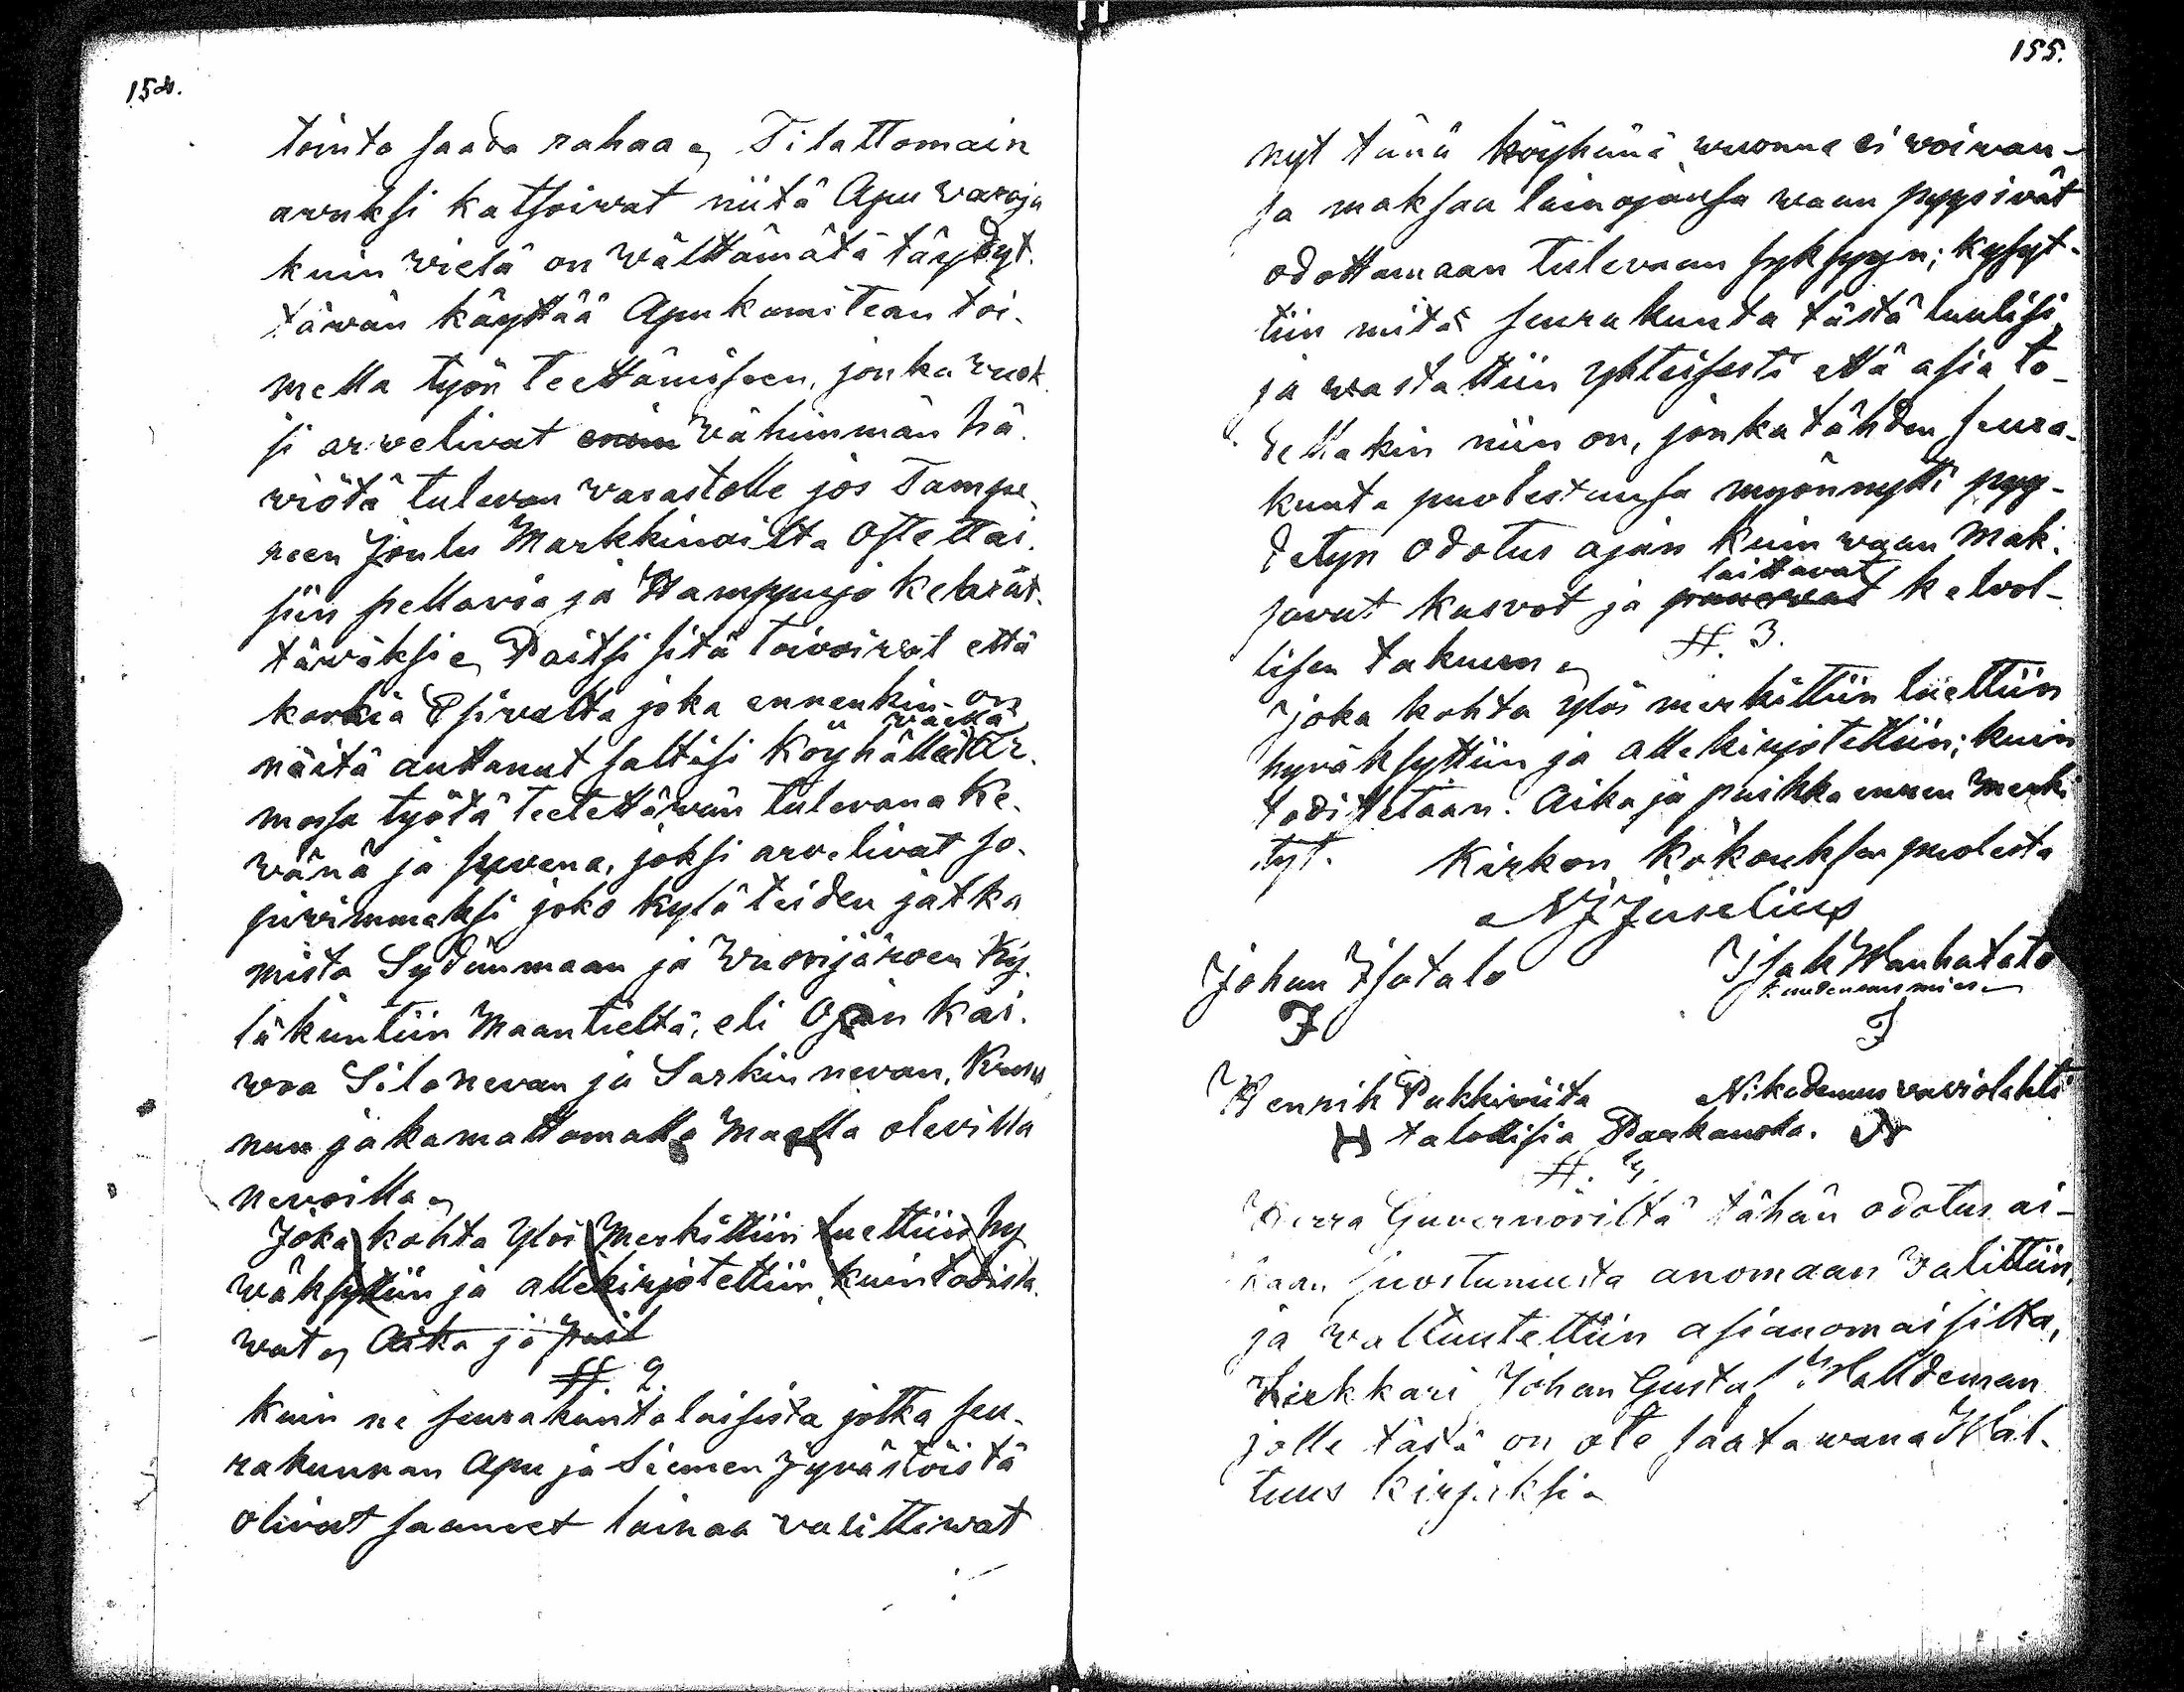 154.
tointa saada rahaa, Tilattomain
awuksi katsoiwat niitä Apu waroja
kuin wielä on wälttämätä täydyt-
täwän käyttää Apukomitean toi-
mella työn teettämiseen, jonka wuok
si arwelivat enim wähimmän hä-
wiötä tulevan warastolle jos Tampe-
reen Joulu Markkinoilta Ostettai-
siin pellavia ja Hamppuja kehrät-
täwäksi, Paitsi sitä toivoiwat että
korkia Esivalta joka ennenkin on
näitä auttanut saltisi Köyhällä waellä Ar-
mossa työtä teetettäwän tulevana Ke-
wänä ja suvena, joksi arvelivat so-
piwimmaksi joko kylä teiden jatka
mista Sydänmaan ja Wuorijärven Ky-
läkuntiin Maantieltä, eli Ojan kai-
woa Silonevan ja Sarkin nevan, Kruu
nun jakamattomalla Maalla olevilla
nevoilla,
Joka kohta Ylös Merkittiin luettiin hy
wäksyttiin ja allekirjotettiin, kuin todista
wat, Aika ja paik
§. 2.
Kuin ne seurakuntalaisista jotka seu-
rakunnan Apu ja Siemen Jyvästöistä
olivat saaneet lainaa valittiwat
155.
nyt tänä köyhänä wuonna ei woiwan-
sa maksaa lainojansa waan pyysivät
odottamaan tulevaan syksyyn; kysyt-
tiin mitä seurakunta tästä luulisi,
ja wastattiin Yhteisesti että asia to-
dellakin niin on, jonka tähden seura-
kunta puolestansa myönnytti pyy-
detyn odotus ajan kuin waan Mak-
savat kasvot ja laittavat kelvol-
lisen takuun,
§. 3.
Joka kohta ylös merkittiin luettiin
hyväksyttiin ja allekirjotettiin; kuin
todistetaan. Aika ja paikka ennen Merki
tyt. Kirkon kokouksen puolesta
N J Juselius
Johan Isotalo Isak Wanhatalo
kuudennusmies
I I
Henrik Pukkiviita Nikodemus wuorilahti
H talollisia Parkanosta. N
§. 4.
Herra Guvernöriltä tähän odotus ai-
kaan suostumusta anomaan Valittiin,
ja waltuutettiin asianomaisilta,
Lukkari Johan Gustaf Halldeman
jolle tästä on ote saatawana Wal-
tuus kirjaksi.